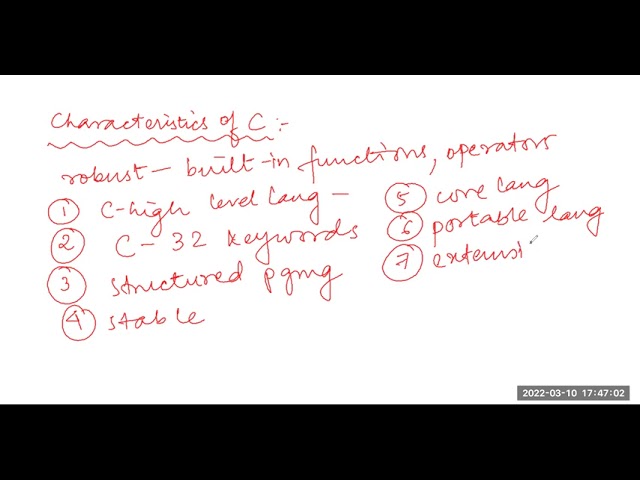 Characteristics of C :-
robust - built-in functions, operators
① C-high level lang -
② C - 32 keywords
③ structured pgmg
④ stable
⑤ core lang
⑥ portable lang
⑦ extensi
2022-03-10 17:47:02